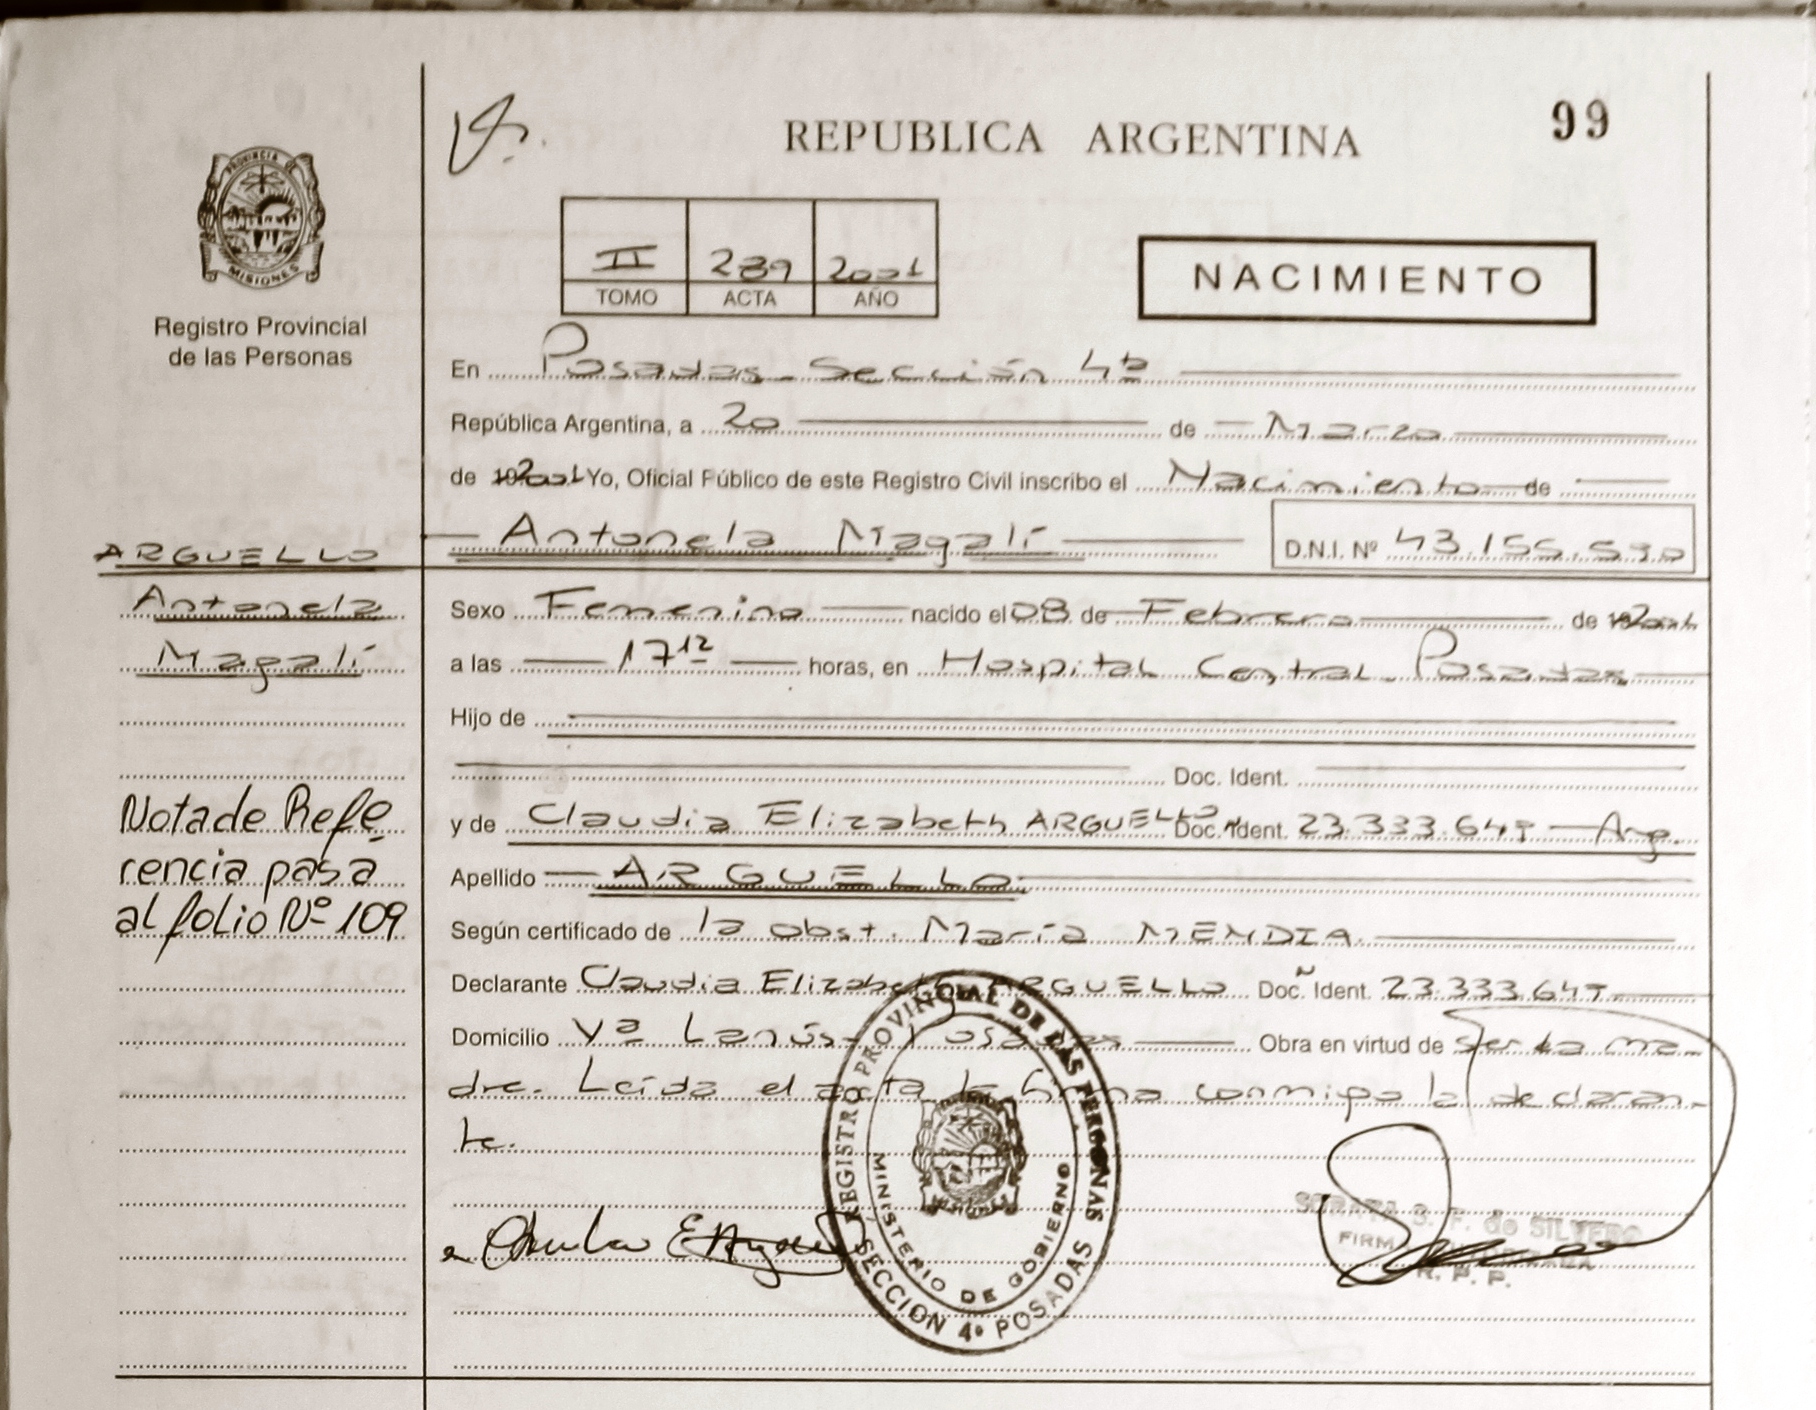 99
REPUBLICA ARGENTINA
PROVINCIA DE
MISIONES
Registro Provincial
de las Personas
II 289 2001
TOMO ACTA AÑO
NACIMIENTO
En Posadas - Sección 4ª
República Argentina, a 20 de Marzo
de 2001 Yo, Oficial Público de este Registro Civil inscribo el Nacimiento de
Antonela Magalí D.N.I. Nº 43.155.590
ARGUELLO
Antonela
Magalí
Sexo Femenino nacido el 08 de Febrero de 2001
a las 17 12 horas, en Hospital Central - Posadas
Hijo de
Doc. Ident.
y de Claudia Elizabeth ARGUELLO Doc. Ident. 23.333.647 - Arg.
Apellido ARGUELLO
Según certificado de la obst. María MENDIA
Declarante Claudia Elizabeth ARGUELLO Doc. Ident. 23.333.647
Domicilio Vª Lanús - Posadas Obra en virtud de ser la ma-
dre. Leída el acta la firma conmigo la declaran-
te.
Nota de Refe
rencia pasa
al folio Nº 109
REGISTRO PROVINCIAL DE LAS PERSONAS
MINISTERIO DE GOBIERNO
SECCION 4ª POSADAS
S. F. de SILVERO
FIRM
R. P. P.